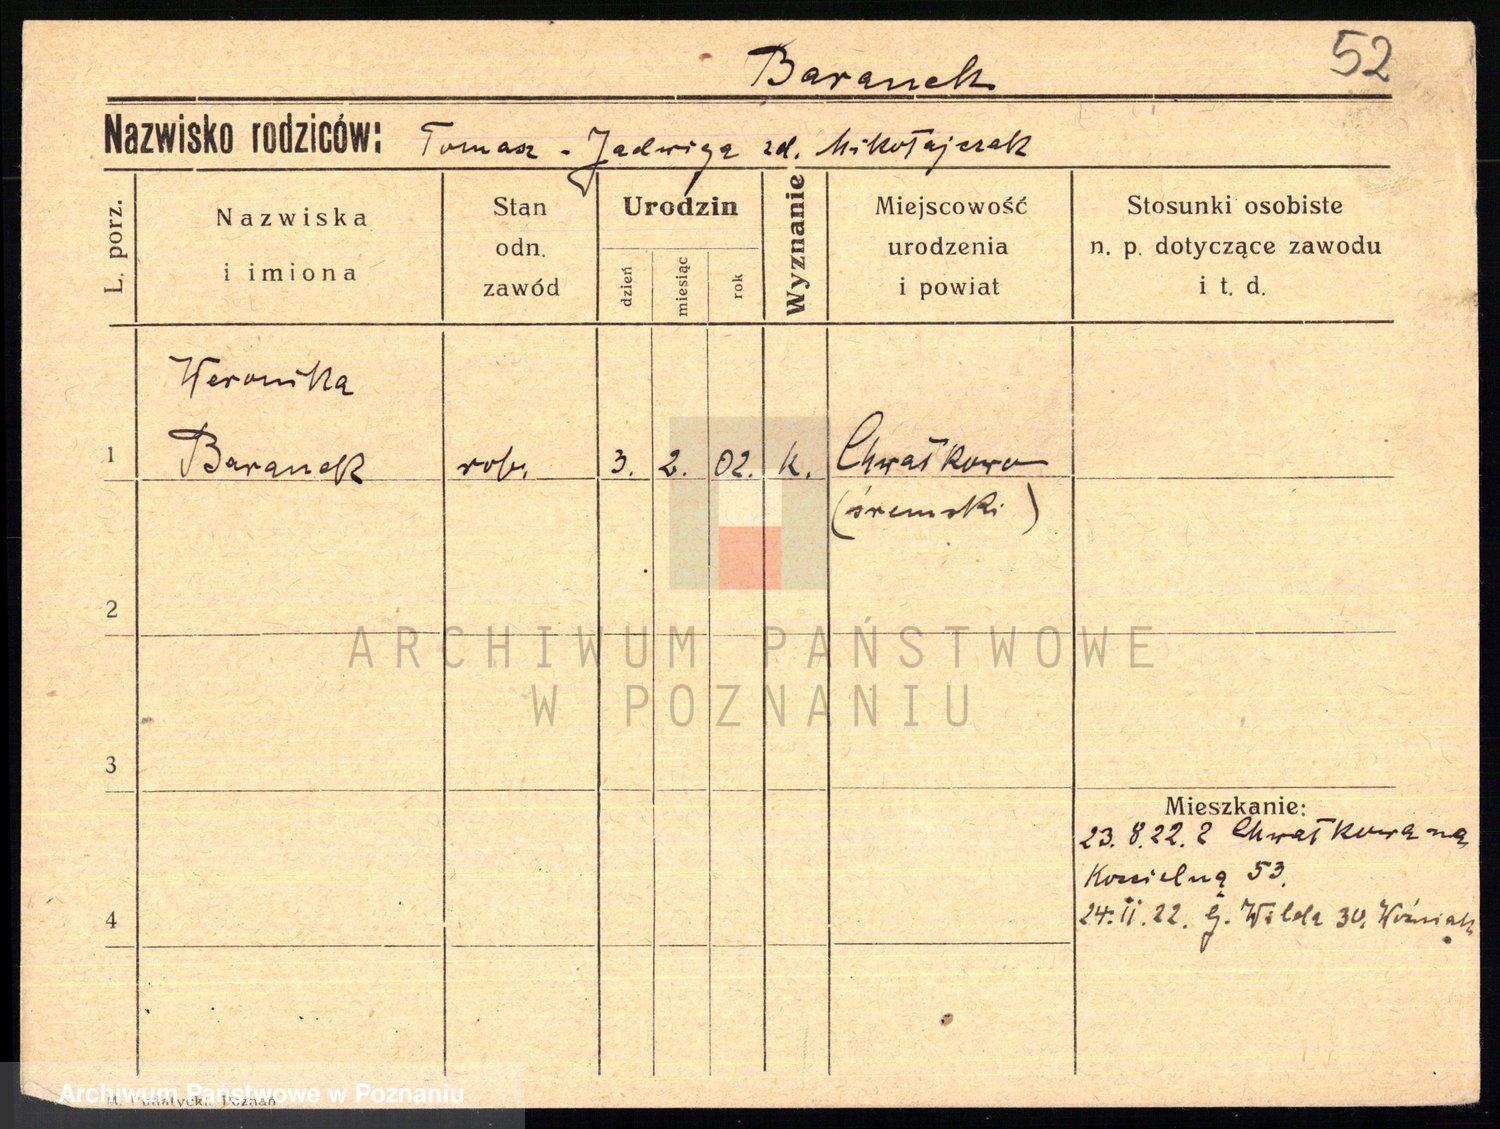 52
Baranek
Nazwisko rodziców: Tomasz - Jadwiga zd. Mikołajczak
L. porz.
Nazwiska
i imiona
Stan
odn.
zawód
Urodzin
dzień
miesiąc
rok
Wyznanie
Miejscowość
urodzenia
i powiat
Stosunki osobiste
n. p. dotyczące zawodu
i t. d.
Weronika
1 Baranek rob. 3. 2. 02. k. Chwałkowo
(śremski)
2
ARCHIWUM PAŃSTWOWE
W POZNANIU
3
Mieszkanie:
23.8.22. z Chwałkowa na
Kościelną 53.
4
24.II.22. G. Wilda 30. Woźniak
Archiwum Państwowe w Poznaniu
Poznań